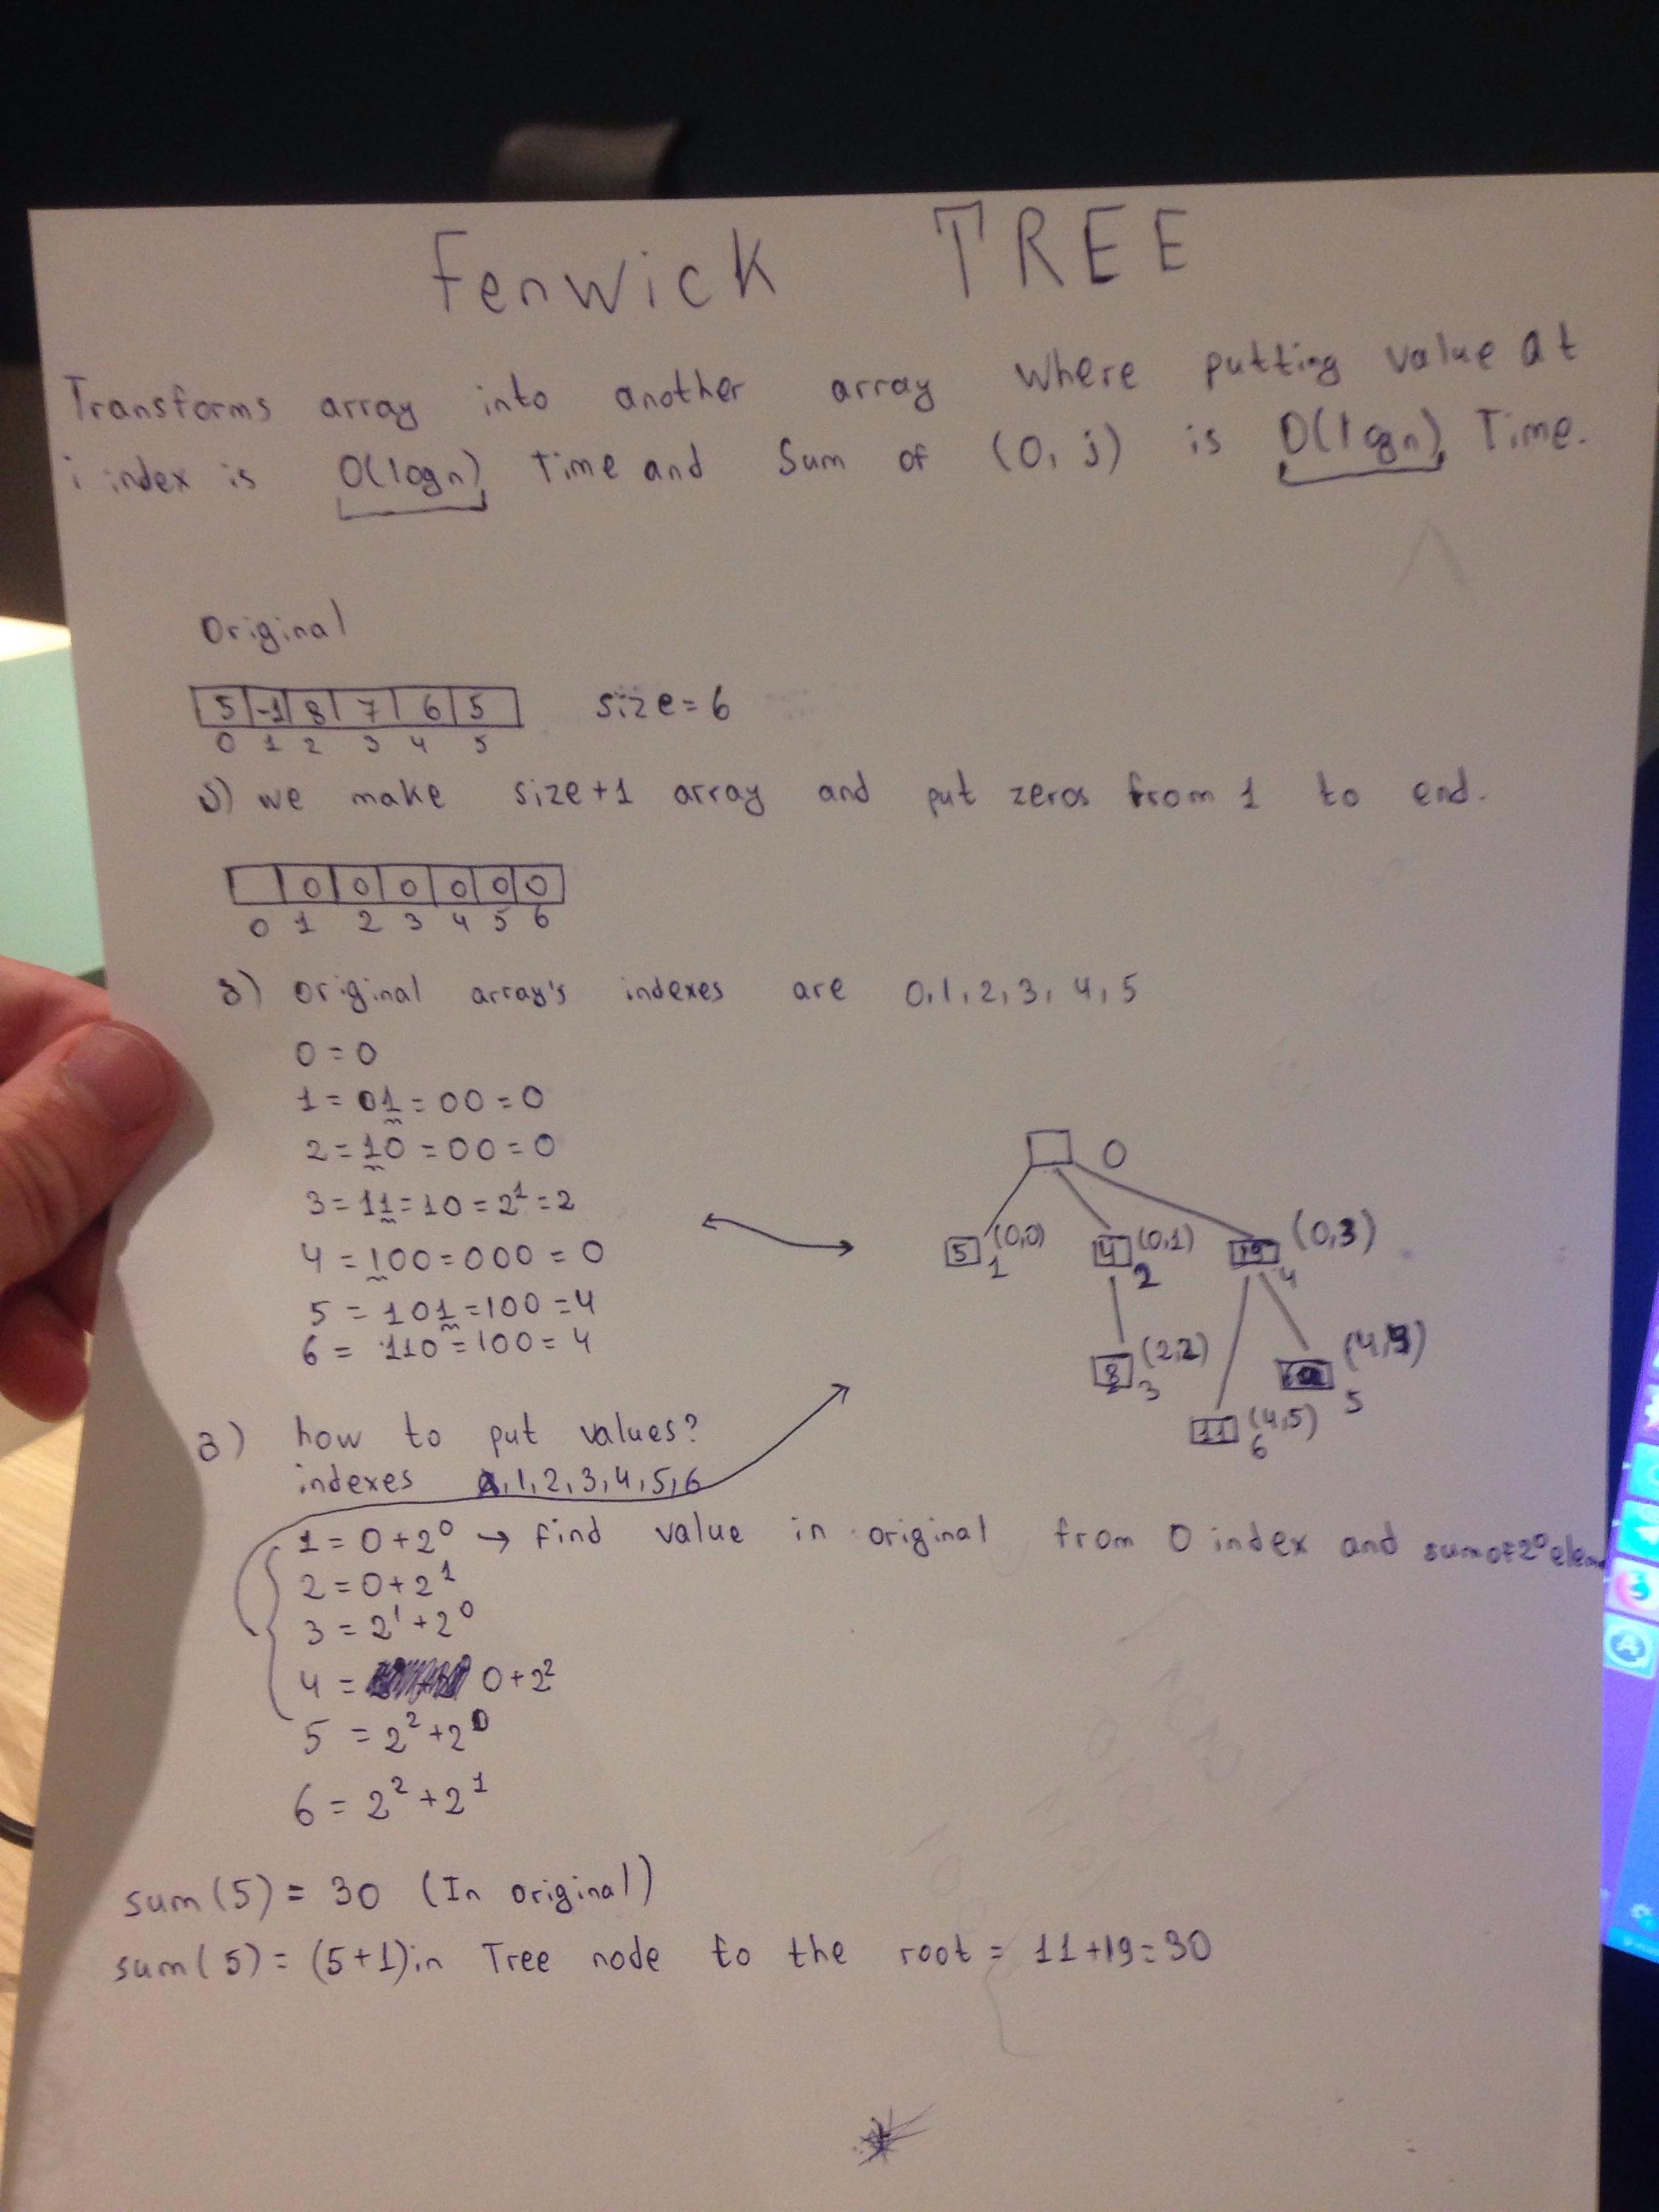 Fenwick TREE
Transforms array into another array where putting value at
i index is O(logn) Time and Sum of (0, j) is O(logn) Time.
Original
5 -1 8 7 6 5 size=6
0 1 2 3 4 5
we make size+1 array and put zeros from 1 to end.
0 0 0 0 0 0
0 1 2 3 4 5 6
original array's indexes are 0,1,2,3,4,5
0 = 0
1 = 01 = 00 = 0
2 = 10 = 00 = 0
3 = 11 = 10 = 2¹ = 2
4 = 100 = 000 = 0
5 = 101 = 100 = 4
6 = 110 = 100 = 4
0
5 (0,0) 1
4 (0,1) 2
19 (0,3) 4
8 (2,2) 3
(4,4) 5
11 (4,5) 6
3) how to put values?
indexes 1,2,3,4,5,6
1 = 0+2⁰ → find value in original from 0 index and sum of 2⁰
2 = 0+2¹
3 = 2¹+2⁰
4 = 0+2²
5 = 2²+2⁰
6 = 2²+2¹
sum(5) = 30 (In original)
sum(5) = (5+1)in Tree node to the root = 11+19=30